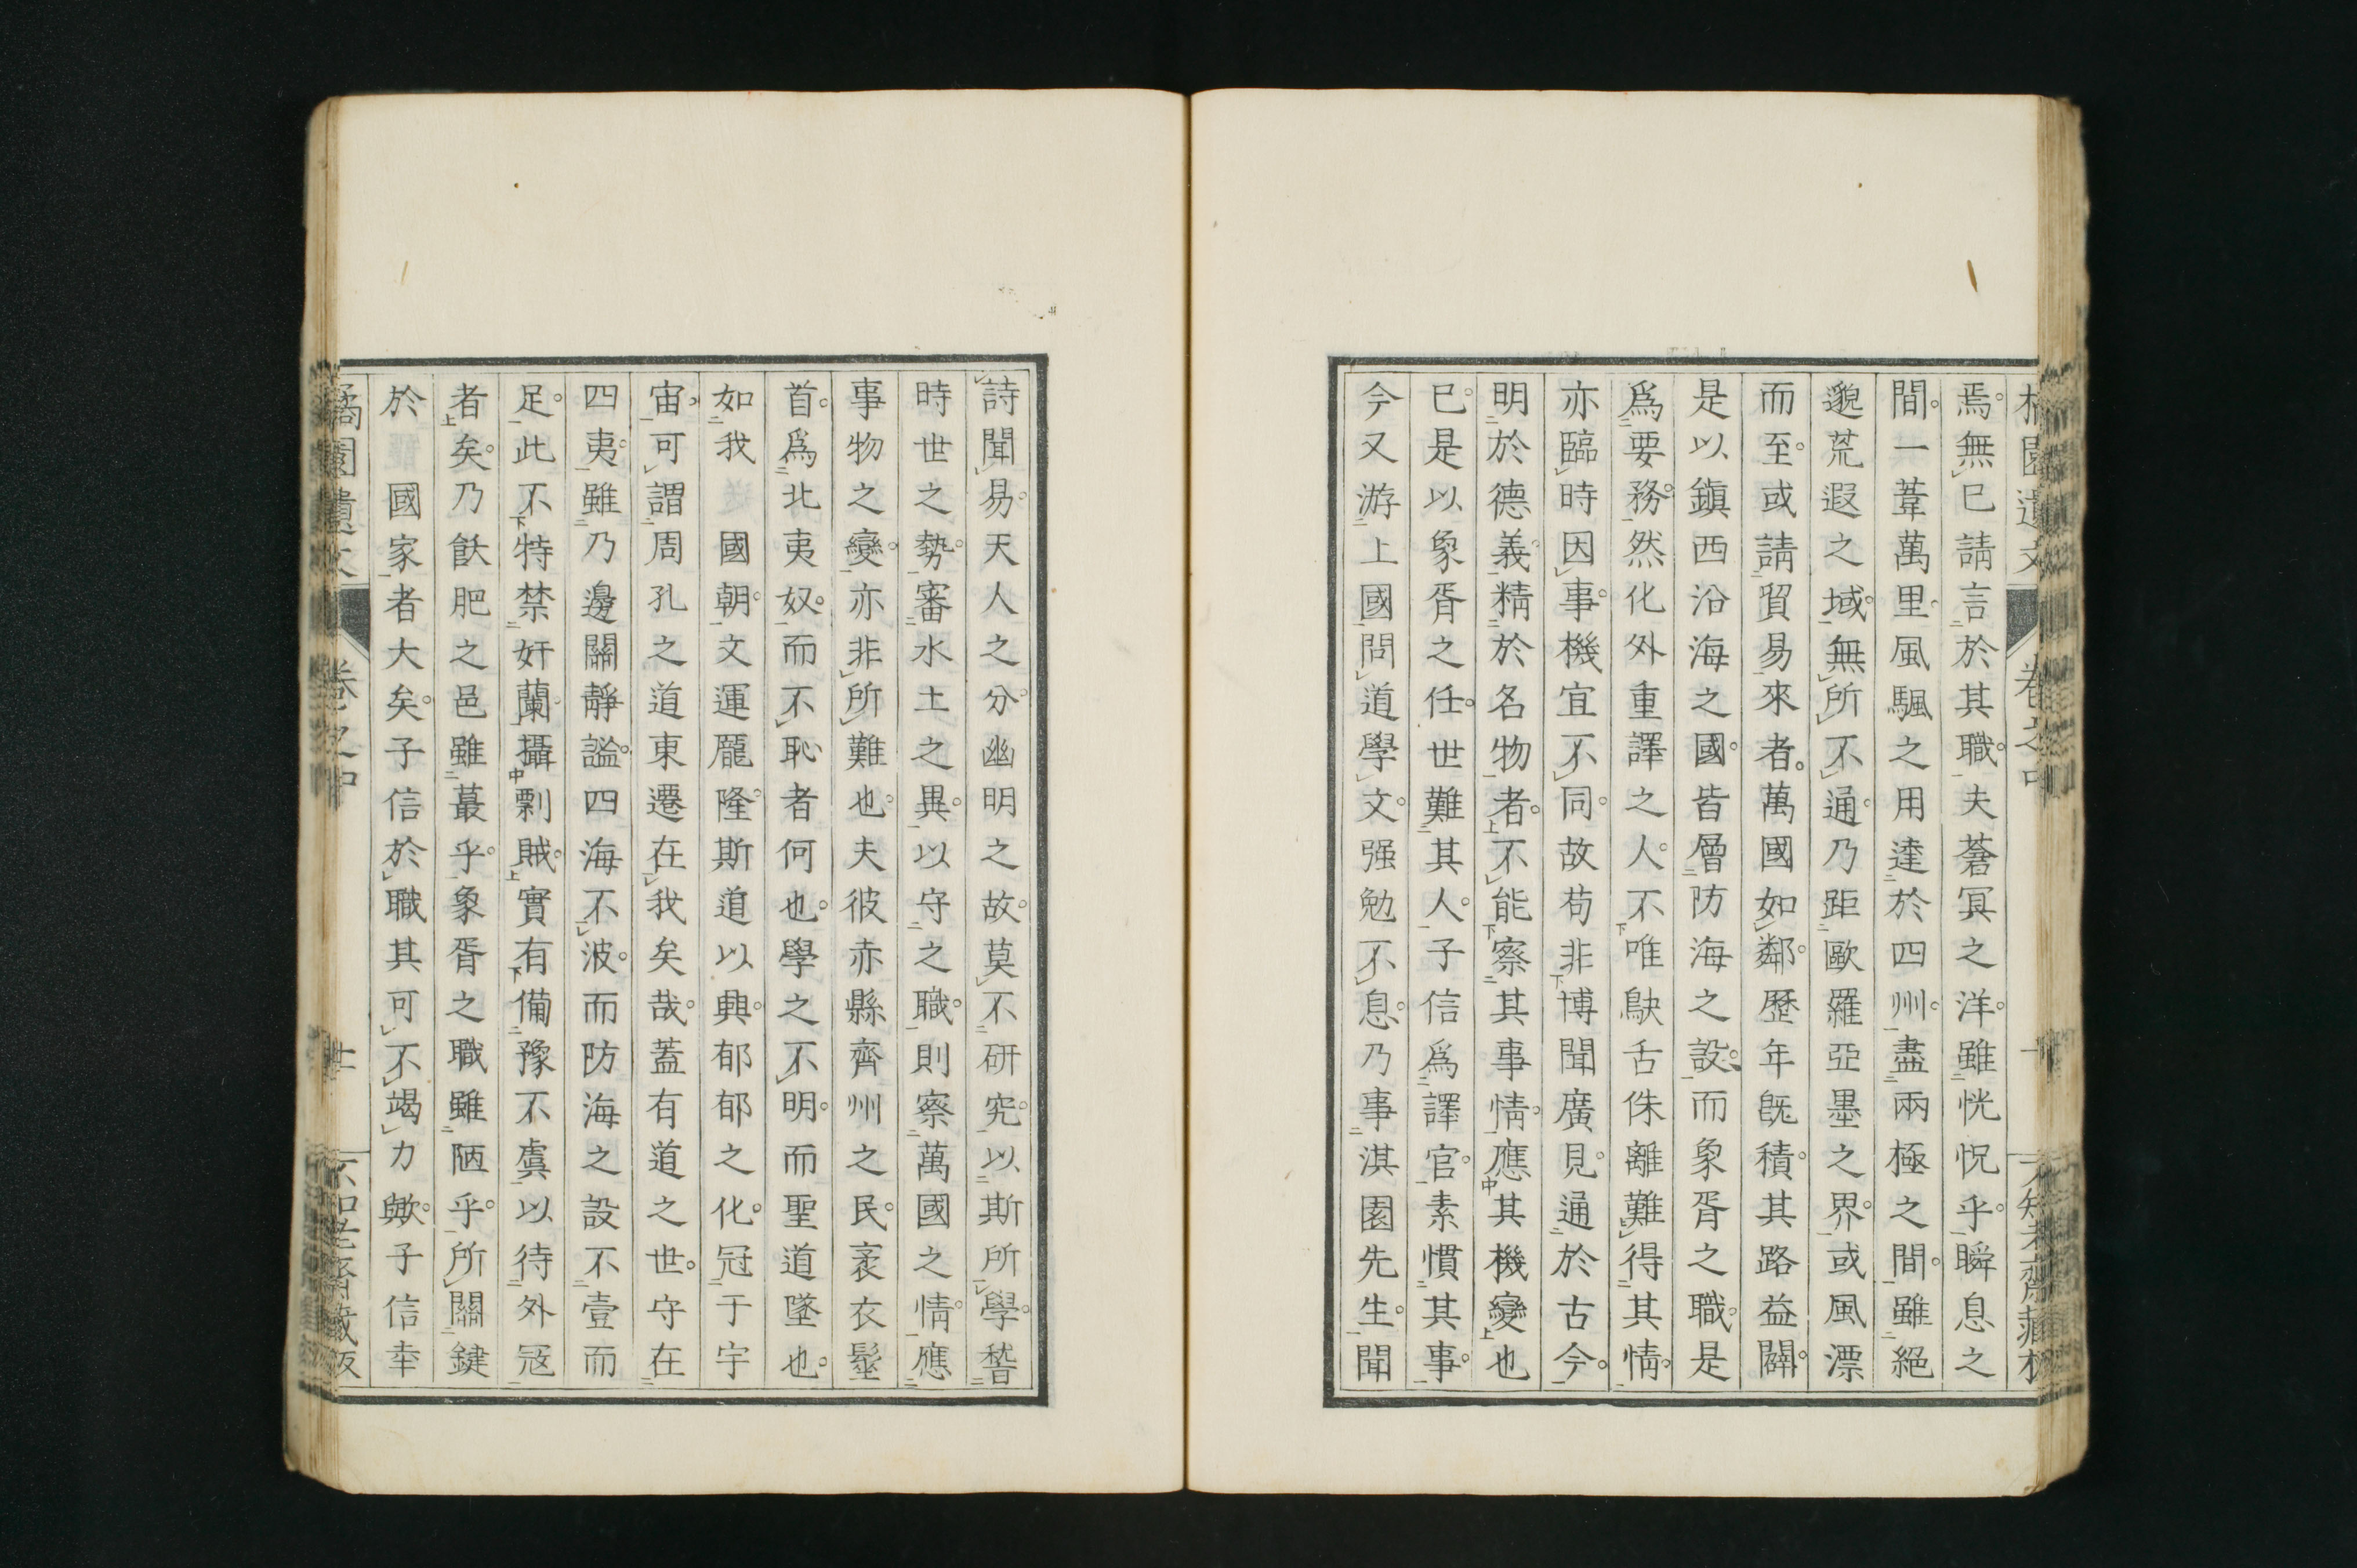 焉無已請言於其職夫蒼冥之洋雖恍怳乎瞬息之
間一葦萬里風颿之用達於四州盡兩極之間雖絕
邈荒遐之域無所不通乃距歐羅亞墨之界或風漂
而至或請貿易來者萬國如鄰歷年既積其路益闢
是以鎮西沿海之國皆層防海之設而象胥之職是
爲要務然化外重譯之人不唯鴃舌侏離難得其情
亦臨時因事機宜不同故苟非博聞廣見通於古今
明於德義精於名物者不能察其事情應其機變也
已是以象胥之任世難其人子信爲譯官素慣其事
今又游上國問道學文强勉不息乃事淇園先生聞
詩聞易天人之分幽明之故莫不研究以斯所學稽
時世之勢審水土之異以守之職則察萬國之情應
事物之變亦非所難也夫彼赤縣齊州之民袤衣髽
首爲北夷奴而不恥者何也學之不明而聖道墜也
如我 國朝文運龐隆斯道以興郁郁之化冠于宇
宙可謂周孔之道東遷在我矣哉蓋有道之世守在
四夷雖乃邊關靜謐四海不波而防海之設不壹而
足此不特禁奸蘭攝剽賊實有備豫不虞以待外寇
者矣乃飫肥之邑雖蕞乎象胥之職雖陋乎所關鍵
於 國家者大矣子信於職其可不竭力歟子信幸
卷之中